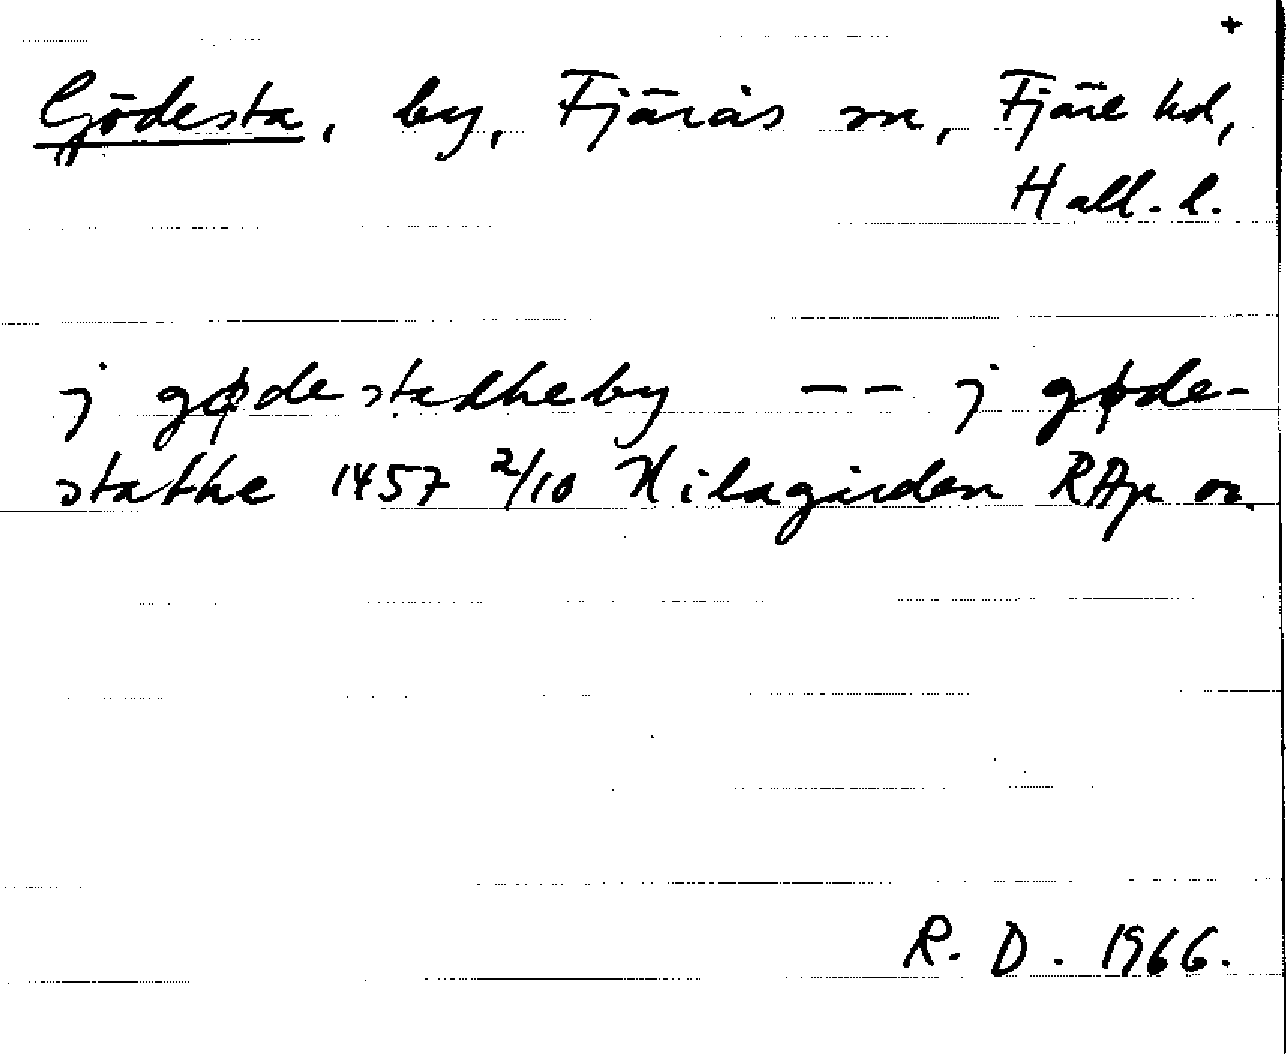 +
Gödesta, by, Fjärås sn, Fjäre hd,
Hall. l.
j gødestadheby -- j gøde-
stathe 1457 2/10 Kilagården RAp or.
R. D. 1966.